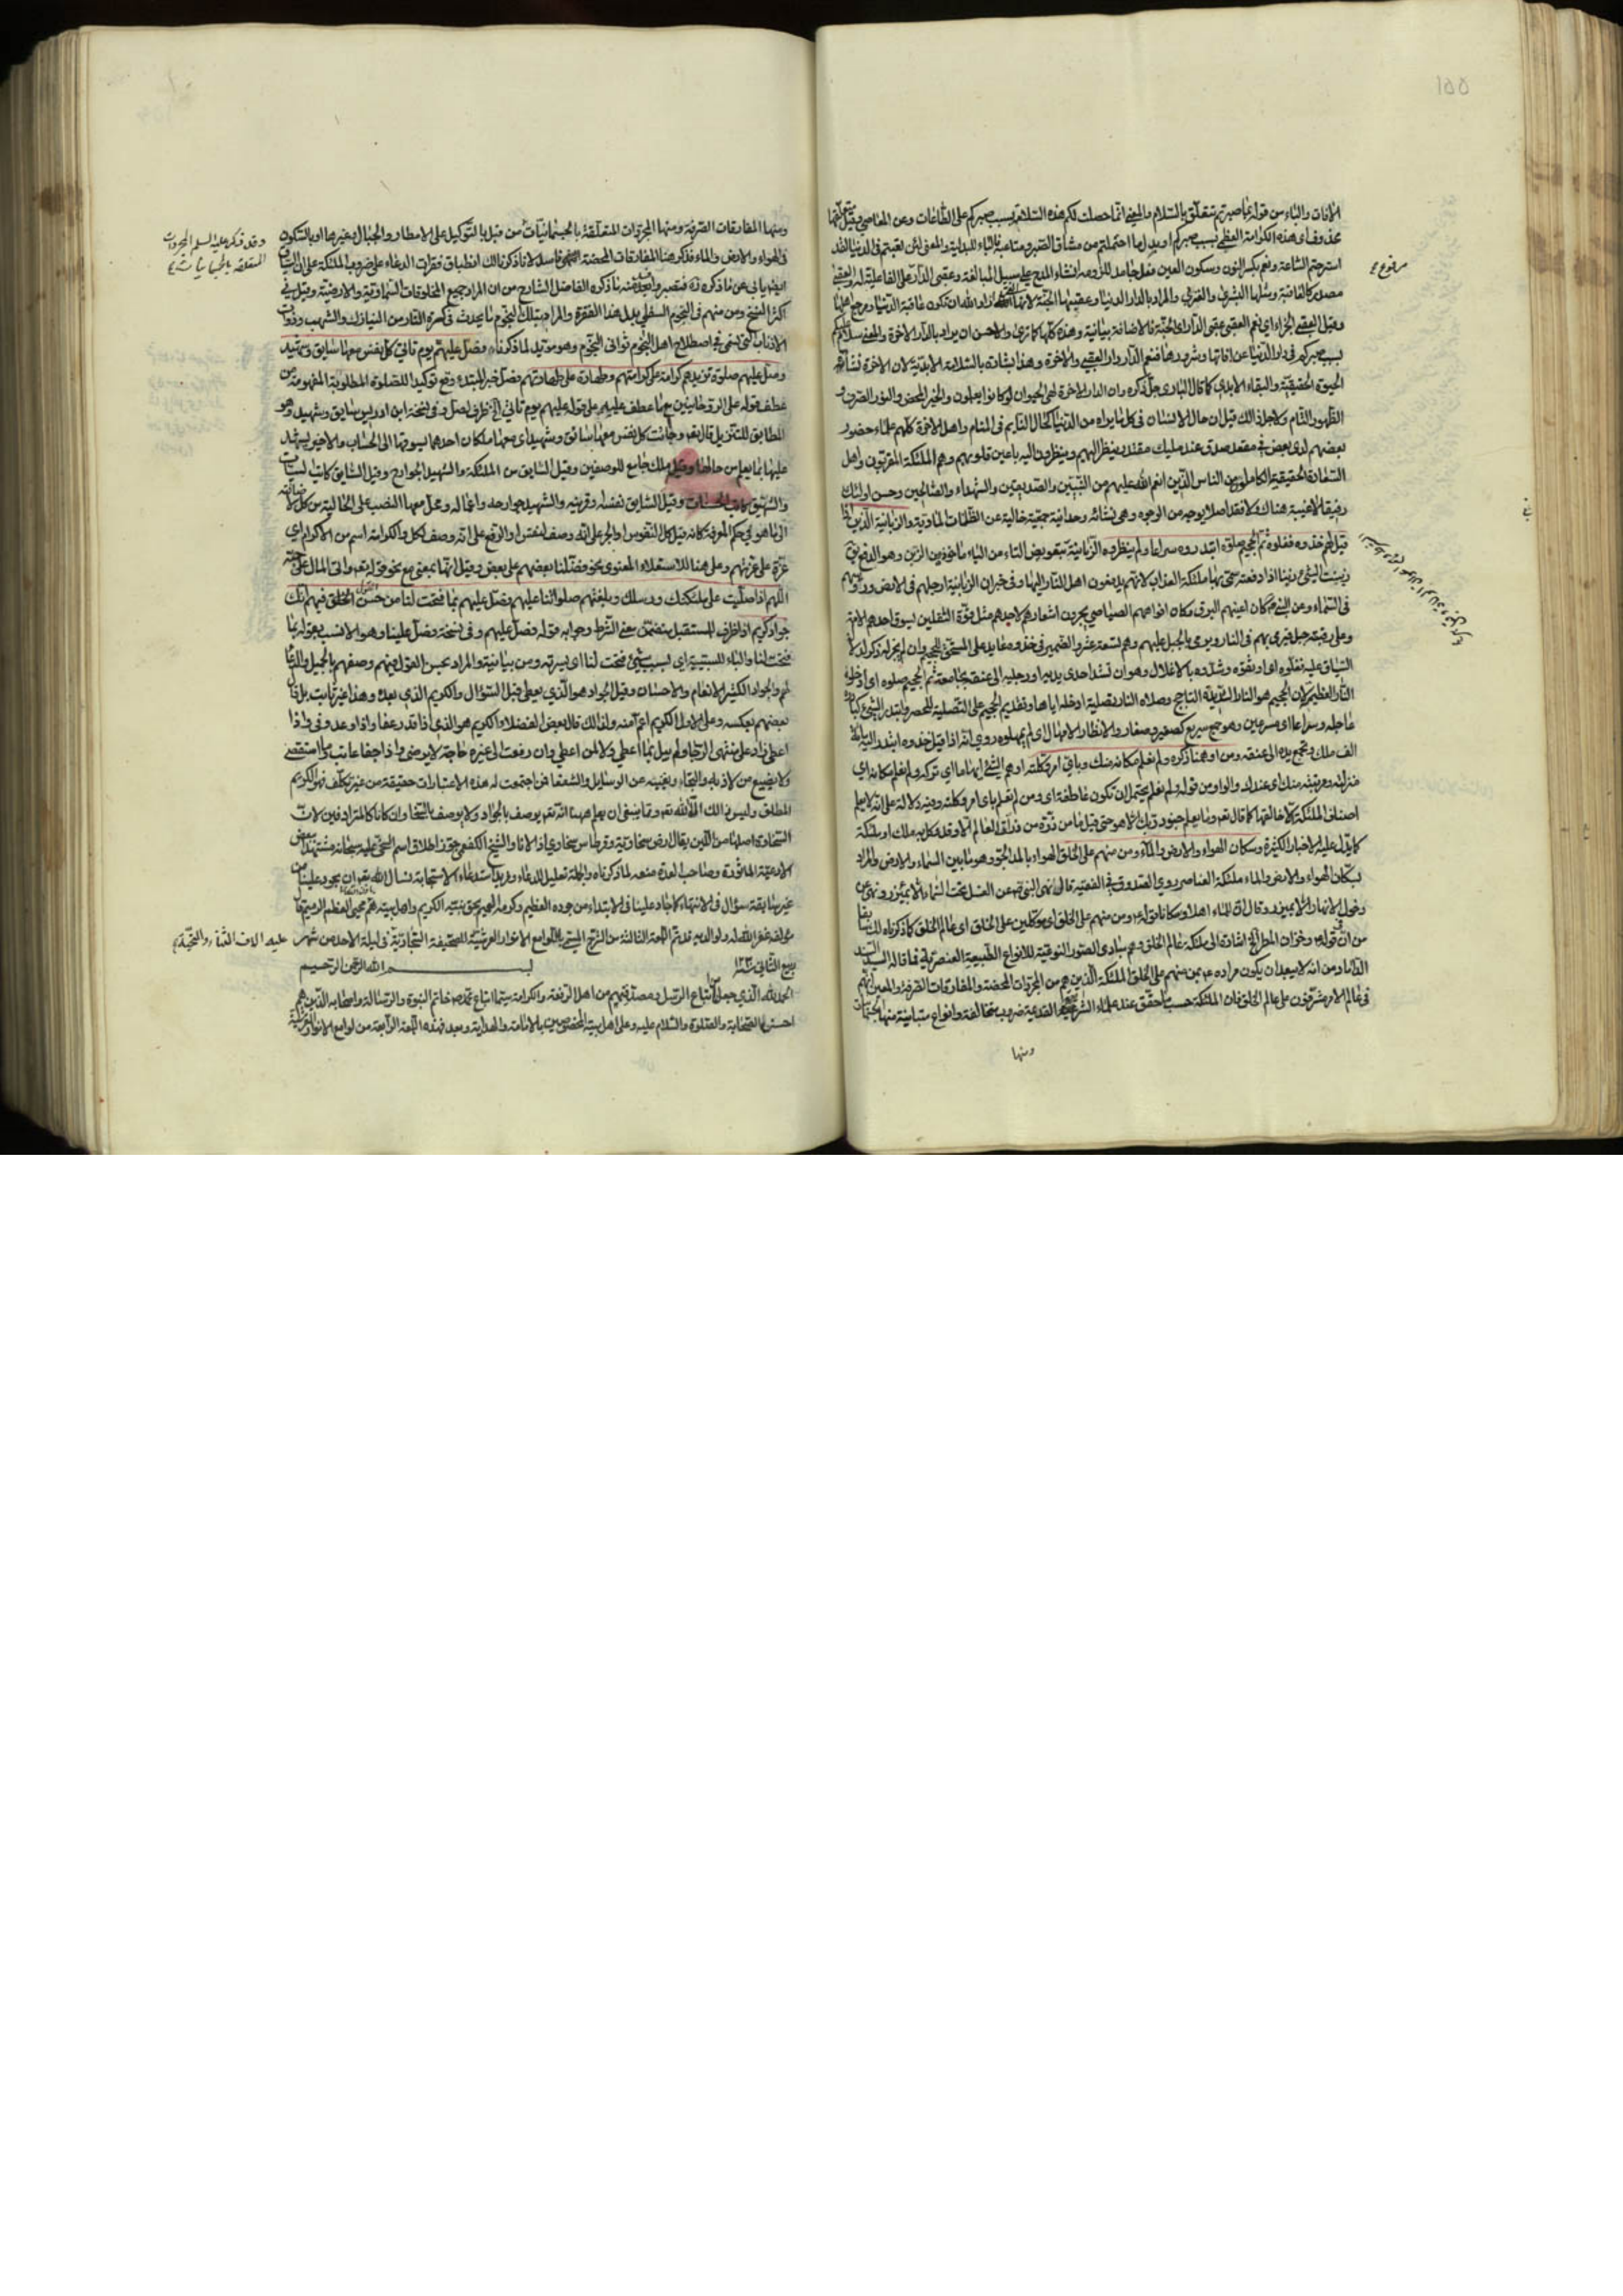 ١٥٥
الافات والباء من قوله بما صبرتم متعلق بالسلام والمعنى انما حصلت لكم هذه السلامة بسبب صبركم على الطاعات وعن المعاصي وقيل متعلقها
محذوف اى هذه الكرامة العظمى بسبب صبركم او بدل ما احتملتم من مشاق الصبر ومتاعبه فالباء للبدلية والمعنى لئن تعبتم في الدنيا لقد
استرحتم الساعة ونعم بكسر النون وسكون العين فعل جامد لانشاء المدح على سبيل المبالغة وعقبى الدار على الفاعلية له والعقبى
مصدر كالعاقبة ومثلها البشرى والقربى والمراد بالدار الدنيا وعقبيها الجنة لانها التي اراد الله ان تكون عاقبة الدنيا ومرجع اهلها
وقيل العقبى الجزاء اي نعم العقبى عقبى الدار اى الجنة فالاضافة بيانية وهذه كلها كما ترى والاحسن ان يراد بالدار الاخرة والمعنى سلام عليكم
بسبب صبركم في دار الدنيا عن افاتها وشرورها فنعم الدار دار العقبى والاخرة وهذا بشارة بالسلامة الابدية لان الاخرة نشأة
الحيوة الحقيقية والبقاء الابدي كما قال البارى جل ذكره وان الدار الاخرة لهي الحيوان لو كانوا يعلمون والخير المحض والنور الصرف و
الظهور التام ولاجل ذلك قيل ان حال الانسان في كل ما يراه من الدنيا كحال النايم في المنام واهل الاخرة كلهم علماء حضور
بعضهم لدى بعض في مقعد صدق عند مليك مقتدر ينظر اليهم وينظرون اليه باعين قلوبهم وهم الملئكة المقربون واهل
السعادة الحقيقية الكاملون من الناس الذين انعم الله عليهم من النبيين والصديقين والشهداء والصالحين وحسن اولئك
رفيقا لا غيبة هناك ولا فقد اصلا بوجه من الوجوه وهي نشأة روحانية حقيقية خالية عن الظلمات المادية والزبانية الذين اذا
قيل لهم خذوه فغلوه ثم الجحيم صلوه ابتدروه سراعا ولم ينظروه الزبانية بتعويض التاء من الياء ماخوذ من الزبن وهو الدفع يق
زبنت الشئ زبنا اذا دفعته سمي بها ملئكة العذاب لانهم يدفعون اهل النار اليها وفي خبر ان الزبانية ارجلهم في الارض ورؤسهم
في السماء وعن النبي كان اعينهم البرق وكان افواههم الصياصي يجرون اشعارهم لاحدهم مثل قوة الثقلين يسوق احدهم الامة
وعلى رقبته جبل فيرمى بهم في النار ويرمى بالجبل عليهم وهم تسعة عشر والضمير في خذوه عايد على المستحق للجحيم وان لم يجر له ذكر لدلالة
السياق عليه فغلوه اى اوثقوه وشدوه بالاغلال وهو ان تشد احدى يديه او رجليه الى عنقه بجامعة ثم الجحيم صلوه اى ادخلوه
النار العظيمة لان الجحيم هو النار الشديدة التاجج وصلاه النار تصلية ادخله اياها وتقديم الجحيم على التصلية للحصر وابتدر الشئ
عاجله وسراعا اى مسرعين وهو جمع سريع كصغير وصغار والانظار الامهال اى لم يمهلوه روي انه اذا قيل خذوه ابتدر اليه مائة
الف ملك وتجمع يده الى عنقه ومن اوهمنا ذكره ولم نعلم مكانه منك وباي امر وكلته اوهم الشئ ايهاما اي تركه ولم نعلم مكانه اي
منزلته ومرتبته منك اى عندك والواو من قوله ولم نعلم يحتمل ان تكون عاطفة اى ومن لم نعلم باى امر وكلته وفيه دلالة على انه لا يعلم
اصناف الملئكة الا خالقها كما قال تعه وما يعلم جنود ربك الا هو حتى قيل ما من ذرة من ذرات العالم الا وقد وكل به ملك او ملئكة
كما يدل عليه الاخبار الكثيرة وسكان الهواء والارض والماء ومن منهم على الخلق الهواء بالمد الجو وهو ما بين السماء والارض والمراد
بسكان الهواء والارض والماء ملئكة العناصر روى الصدوق في الفقيه قال نهى النبي عن الغسل تحت السماء الا بميزر ونهى عن
دخول الانهار الا بميزر وقال ان للماء اهلا وسكانا قوله ومن منهم على الخلق اى موكلين على الخلق اى عالم الخلق كما ذكرناه لك سابقا
من ان قوله وخزان المطر الخ اشارة الى ملئكة عالم الخلق وهم مبادى الصور النوعية للانواع الطبيعية العنصرية فما قاله السيد السند
الداماد من انه لا يبعد ان يكون مراده بمن منهم على الخلق الملئكة الذين هم من المجردات المحضة والمفارقات الصرفة والمعنى انهم
في عالم الامر مشرفون على عالم الخلق فان الملئكة حسب ما حقق عند علماء الشريعة القديمة ضروب مختلفة وانواع متباينة منها الجسمانيات
ومنها
ومنها المفارقات الصرفة ومنها المجردات المتعلقة بالجسمانيات من قبل بالتوكيل على الامطار والجبال وغيرها او بالسكون
في الهواء والارض والماء فذكر هنا المفارقات المحضة انتهى فاسد لما ذكرنا لك انطباق فقرات الدعاء على ضروب الملئكة على ان السياق
ايضا يابى عن ما ذكره ما ذكره الفاضل الشارح من ان المراد جميع المخلوقات السماوية والارضية وقيل في
اكثر النسخ ومن منهم في النجوم السفلى بدل هذا الفقرة والمراد بتلك النجوم ما يحدث في كرة النار من النيازك والشهب وذوات
الاذناب التي تسمى في اصطلاح اهل النجوم ثوانى النجوم وهو مؤيد لما ذكرناه وصل عليهم يوم تأتي كل نفس معها سائق وشهيد
وصل عليهم صلوة تزيدهم كرامة على كرامتهم وطهارة على طهارتهم فصل خبر المبتدء وقع توكيدا للصلوة المطلوبة المفهومة من
عطف قوله على الروحانيين مع ما عطف عليهم على قوله عليهم يوم تاتي الخ ظرف لصل وفي نسخة ابن ادريس سايق وشهيد وهو
المطابق للتنزيل قال تعه وجائت كل نفس معها سائق وشهيد اى معها ملكان احدهما يسوقها الى الحساب والاخر يشهد
عليها بما يعلم من حالها وقيل ملك جامع للوصفين وقيل السايق من الملئكة والشهيد الجوارح وقيل السايق كاتب السيئات
والشهيد كاتب الحسنات وقيل السايق نفسه او قرينه والشهيد جوارحه واعماله ومحل معها النصب على الحالية من كل لاضافته
الى ما هو في حكم المعرفة كانه قيل كل النفوس او الجر على انه وصف لنفس او الرفع على انه وصف لكل والكرامة اسم من الاكرام اي
عزة على عزتهم وعلى هنا للاستعلاء المعنوى نحو فضلنا بعضهم على بعض وقيل انها بمعنى مع نحو قوله تعه واتى المال على حبه
اللهم اذا صليت على ملئكتك ورسلك وبلغتهم صلواتنا عليهم فصل عليهم بما فتحت لنا من حسن القول فيهم انك
جواد كريم اذا ظرف للمستقبل متضمن معنى الشرط وجوابه قوله فصل عليهم وفي نسخة فصل علينا وهو الانسب بقوله بما
فتحت لنا والباء للسببية اي بسبب شئ فتحت لنا اى يسرته ومن بيانية والمراد بحسن القول فيهم وصفهم بالجميل والدعاء
لهم والجواد الكثير الانعام والاحسان وقيل الجواد هو الذي يعطي قبل السؤال والكريم الذي بعده وهذا غير ثابت بل قال
بعضهم بعكسه وعلى الاول الكريم اعم منه ولذلك قال بعض الفضلاء الكريم هو الذى اذا قدر عفا واذا وعد وفى واذا
اعطى زاد على منتهى الرجا ولم يبال بما اعطى ولا لمن اعطى وان رفعت الى غيره حاجة لا يرضى واذا جفا عاتب وما استقصى
ولا يضيع من لاذ به والتجاء ويغنيه عن الوسايل والشفعا فمن اجتمعت له هذه الاعتبارات حقيقة من غير تكلف فهو الكريم
المطلق وليس ذلك الا الله تعه ومما ينبغي ان يعلم ههنا انه تعه يوصف بالجواد ولا يوصف بالسخا وان كانا كالمترادفين لان
السخاوة اصلها من اللين يقال ارض سخاوية وقرطاس سخاوي اذ الانا والشيخ الكفعمى جوز اطلاق اسم السخى عليه سبحانه مستندا لبعض
الادعية الماثورة وصاحب العدة منعه لما ذكرناه والجملة تعليل للدعاء ومزيد استدعاء الاستجابة نسال الله تعه ان يجود علينا من
غير سابقة سؤال في الانتهاء كما جاد علينا في الابتداء من جوده العظيم وكرمه العميم بحق نبيه الكريم واهل بيته محيى العظم الرميم قال
مؤلفه غفر الله له ولوالديه قد تم اللمعة الثالثة من الشرح المسمى باللوامع الانوار العرشية للصحيفة السجادية في ليلة الاحد من شهر
ربيع الثاني سنة
بسم الله الرحمن الرحيم
الحمد لله الذي جعل اتباع الرسل ومصدقيهم من اهل الرفعة والكرامة سيما اتباع محمد خاتم النبوة والرسالة واصحابه الذين هم
احسنوا الصحابة والصلوة والسلام عليه وعلى اهل بيته المخصوصين بالامامة والهداية وبعد فهذه اللمعة الرابعة من لوامع الانوار العرشية
وقد ذكر عليه السلم المجردات
المتعلقة بالجسمانيات
عليه الاف الثناء والتحية